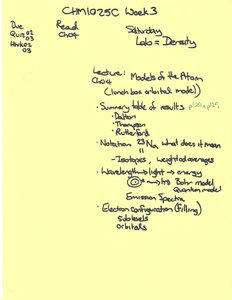 CHM1025C Week 3
Due
Quiz 02
03
Hmk 02
03
Read
Ch 04
Saturday
Lab = Density
Lecture: Models of the Atom
Ch04 (lunch box orbital model)
• Summary table of results
• Dalton
• Thompson
• Rutherford
• Notation 23 Na what does it mean
11
- Isotopes, weighted averages
• Wavelength → light → energy
Bohr model
Quantum model
Emission Spectra
• Electron configuration (Filling)
sublevels
orbitals